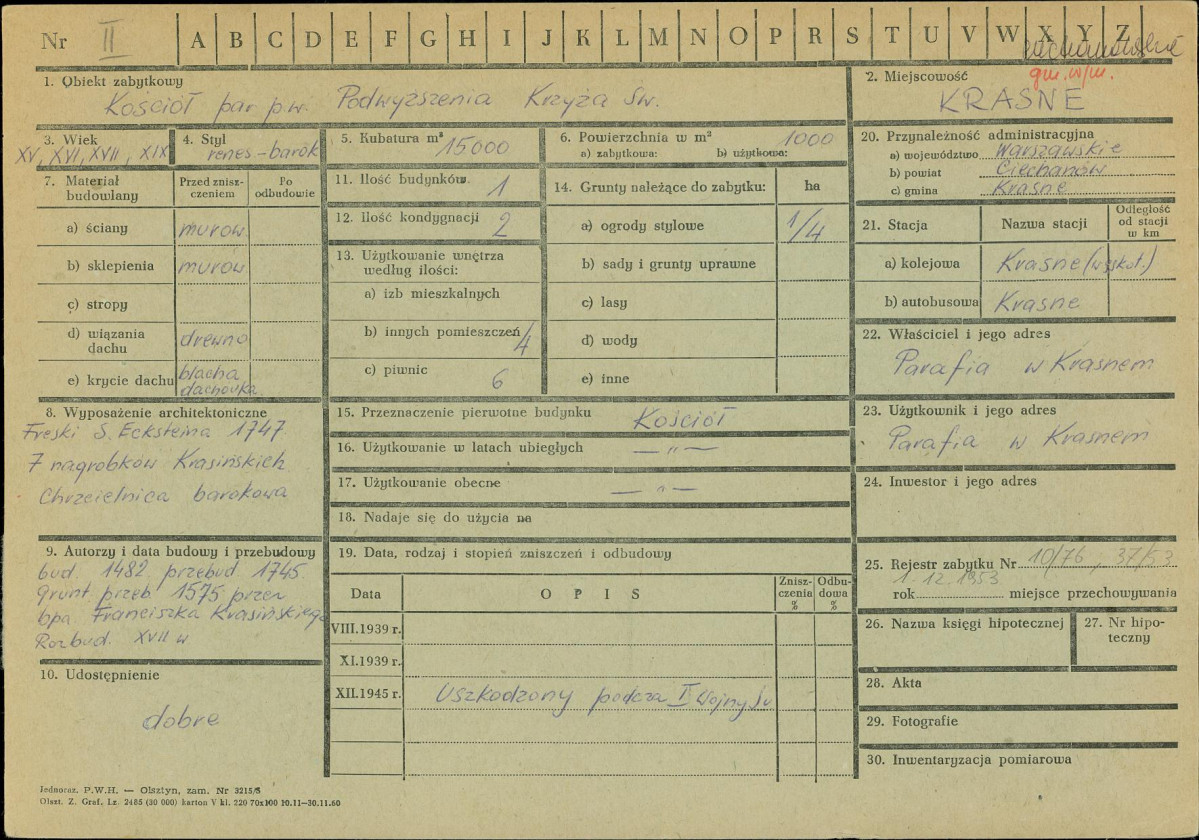 Nr II A B C D E F G H I J K L M N O P R S T U V W X Y Z
ciechanowskie
gm. w/m.
1. Obiekt zabytkowy
Kościół par p.w. Podwyższenia Krzyża Św.
2. Miejscowość
KRASNE
3. Wiek
XV, XVI, XVII, XIX
4. Styl
renes-barok
5. Kubatura m³ 15000
6. Powierzchnia w m² 1000
a) zabytkowa: b) użytkowa:
20. Przynależność administracyjna
a) województwo Warszawskie
b) powiat Ciechanów
c) gmina Krasne
7. Materiał budowlany
Przed zniszczeniem
Po odbudowie
a) ściany murow
b) sklepienia murow
c) stropy
d) wiązania dachu drewno
e) krycie dachu blacha
dachówka
11. Ilość budynków 1
12. Ilość kondygnacji 2
13. Użytkowanie wnętrza
według ilości:
a) izb mieszkalnych
b) innych pomieszczeń 4
c) piwnic 6
14. Grunty należące do zabytku: ha
a) ogrody stylowe 1/4
b) sady i grunty uprawne
c) lasy
d) wody
e) inne
21. Stacja Nazwa stacji Odległość od stacji w km
a) kolejowa Krasne (wąskot.)
b) autobusowa Krasne
22. Właściciel i jego adres
Parafia w Krasnem
8. Wyposażenie architektoniczne
Freski S. Ecksteina 1747.
7 nagrobków Krasińskich
Chrzcielnica barokowa
15. Przeznaczenie pierwotne budynku Kościół
16. Użytkowanie w latach ubiegłych — „ —
17. Użytkowanie obecne — „ —
18. Nadaje się do użycia na
23. Użytkownik i jego adres
Parafia w Krasnem
24. Inwestor i jego adres
9. Autorzy i data budowy i przebudowy
bud. 1482 przebud 1745.
grunt. przeb 1575 przez
bpa Franciszka Krasińskiego
Rozbud. XVII w
19. Data, rodzaj i stopień zniszczeń i odbudowy
Data OPIS Zniszczenia % Odbudowa %
VIII.1939 r.
XI.1939 r.
XII.1945 r. Uszkodzony podcza II Wojny Św
25. Rejestr zabytku Nr 10/76, 37/53
1.12.1953
rok miejsce przechowywania
26. Nazwa księgi hipotecznej
27. Nr hipoteczny
10. Udostępnienie
dobre
28. Akta
29. Fotografie
30. Inwentaryzacja pomiarowa
Jednoraz. P.W.H. — Olsztyn, zam. Nr 3215/S
Olszt. Z. Graf. Lz. 2485 (30 000) karton V kl. 220 70x100 10.11—30.11.60